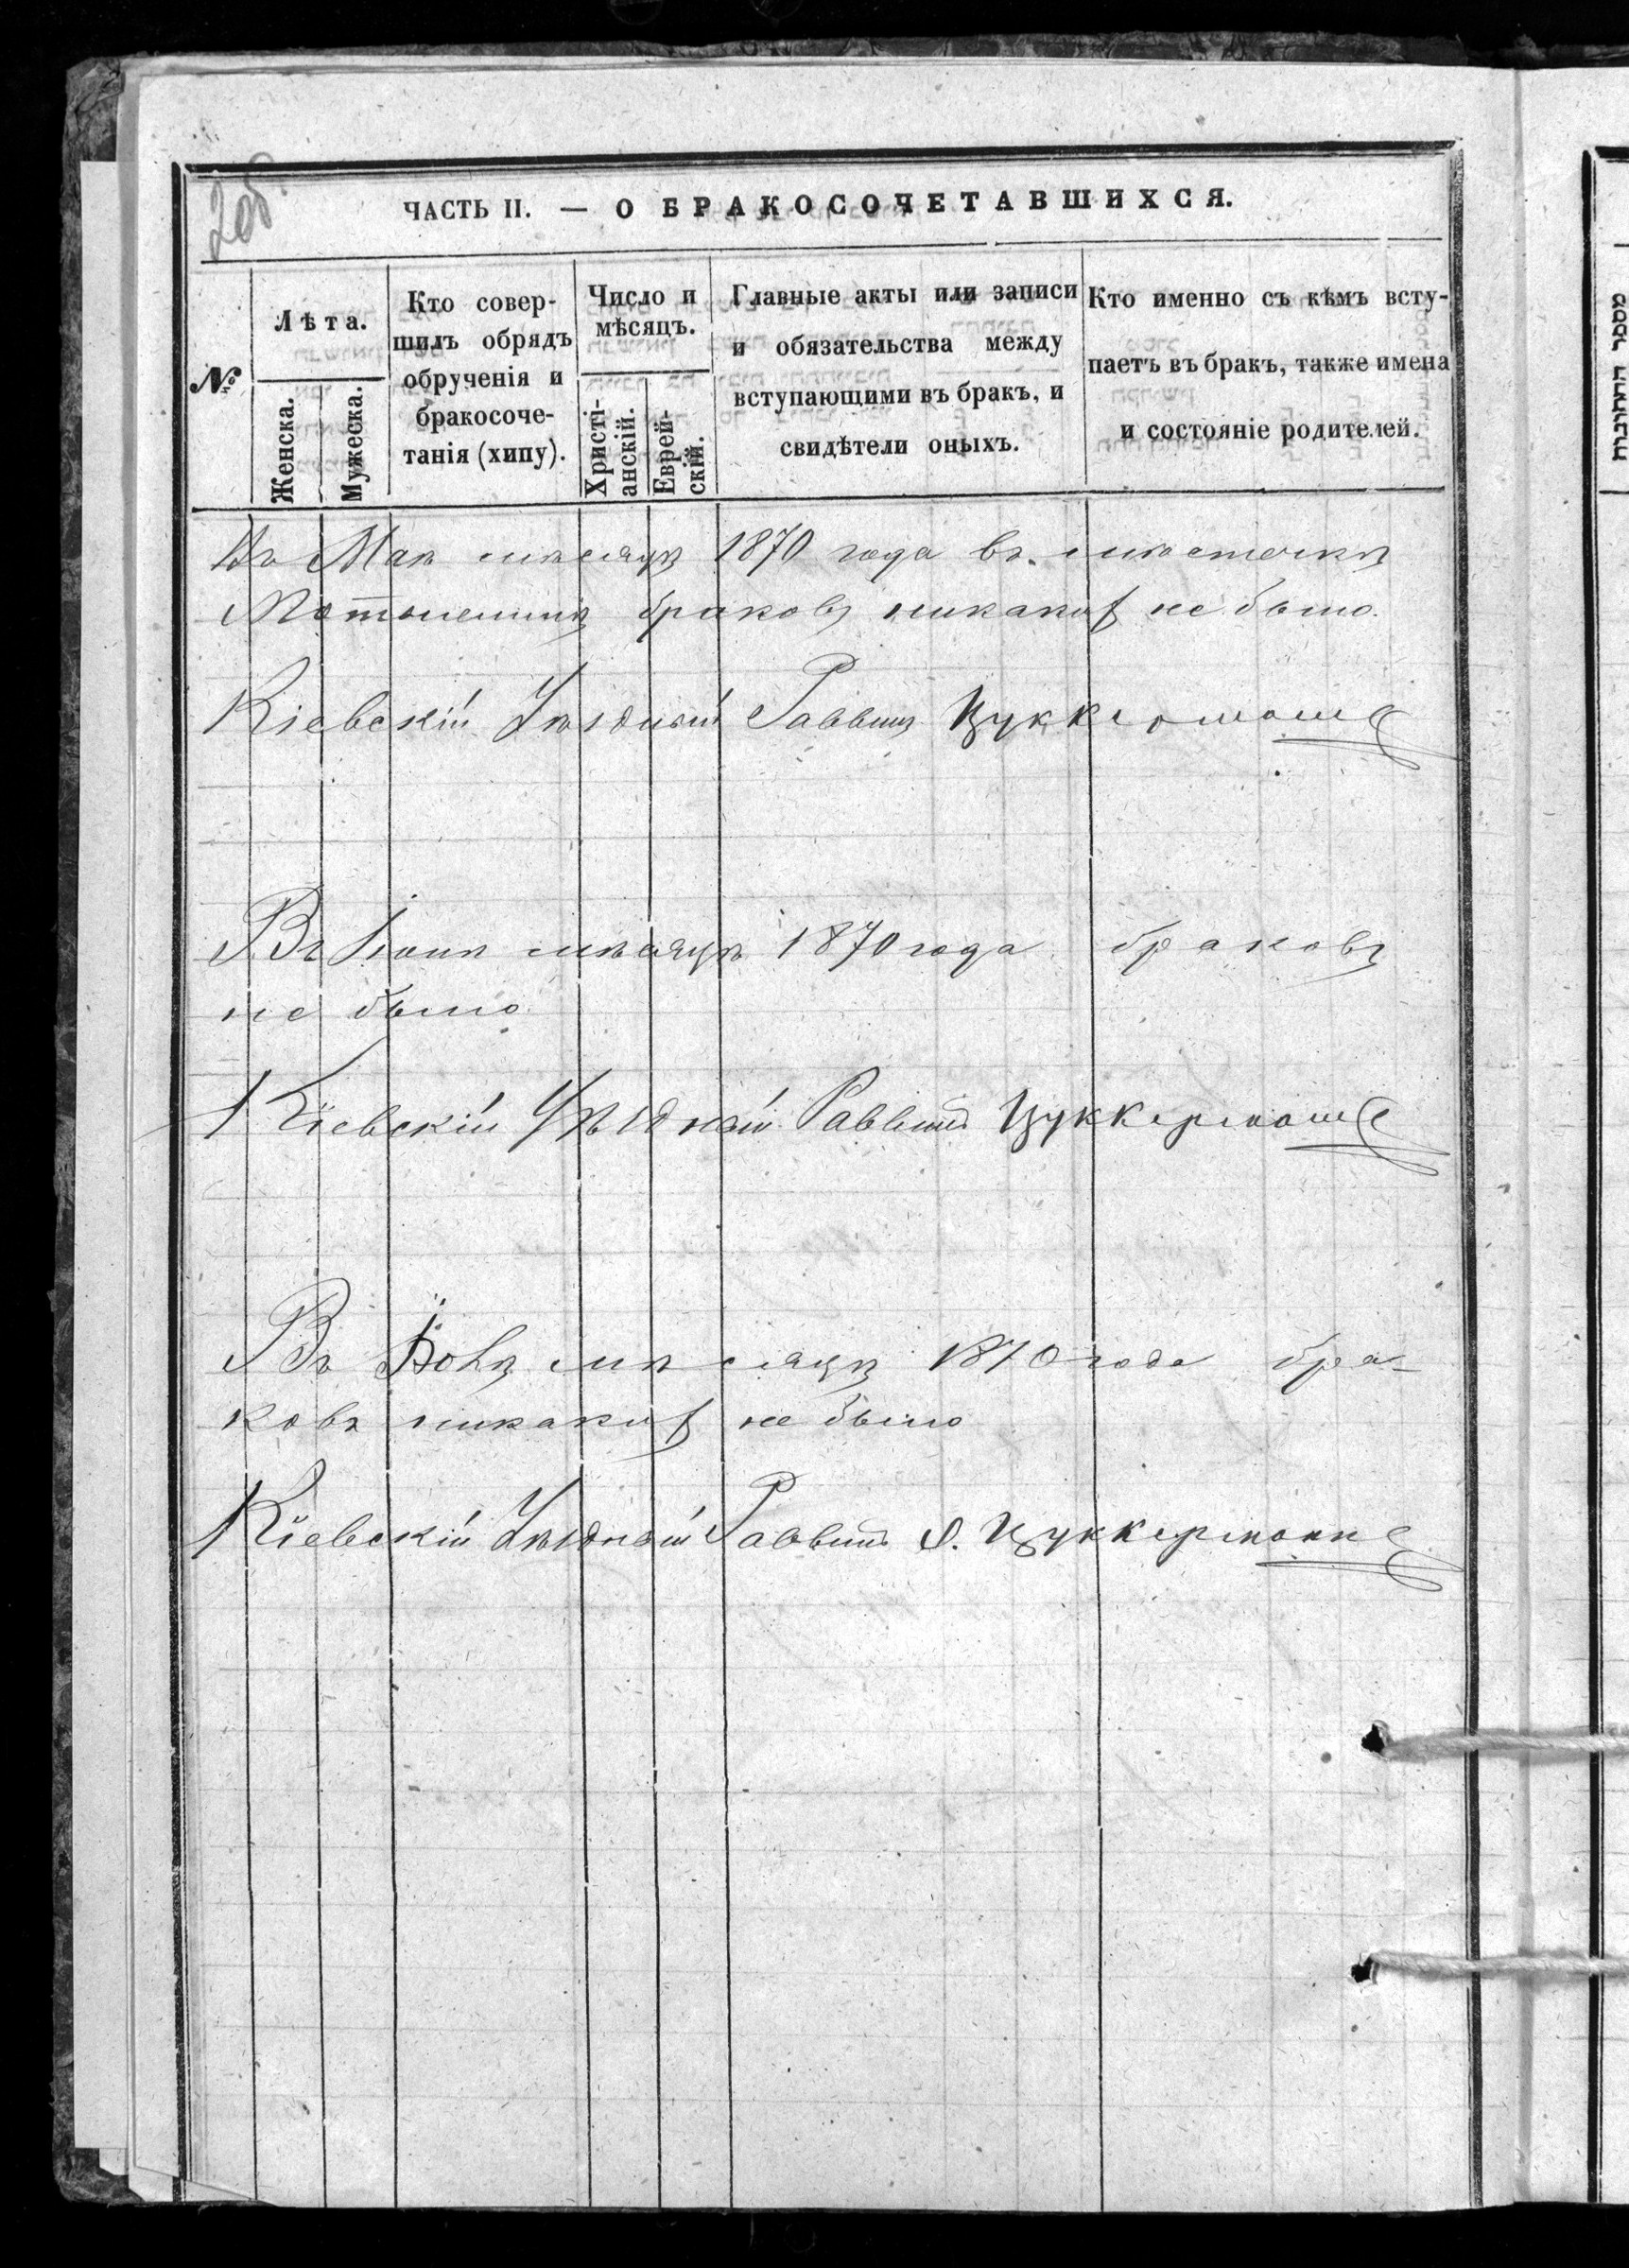 205.
ЧАСТЬ II. — О БРАКОСОЧЕТАВШИХСЯ.
№
Лѣта.
Женска.
Мужеска.
Кто совер-
шилъ обрядъ
обрученія и
бракосоче-
танія (хипу).
Число и
мѣсяцъ.
Христі-
анскій.
Еврей-
скій.
Главные акты или записи
и обязательства между
вступающими въ бракъ, и
свидѣтели оныхъ.
Кто именно съ кѣмъ всту-
паетъ въ бракъ, также имена
и состояніе родителей.
Въ Маѣ мѣсяцѣ 1870 года въ мѣстечкѣ
браковъ никакихъ не было.
Кіевскій Уѣздный Раввинъ Цуккерманъ
Въ Іюнѣ мѣсяцѣ 1870 года браковъ
не было
Кіевскій Уѣздный Раввинъ Цуккерманъ
Въ Іюлѣ мѣсяцѣ 1870 года бра-
ковъ никакихъ не было
Кіевскій Уѣздный Раввинъ Цуккерманъ